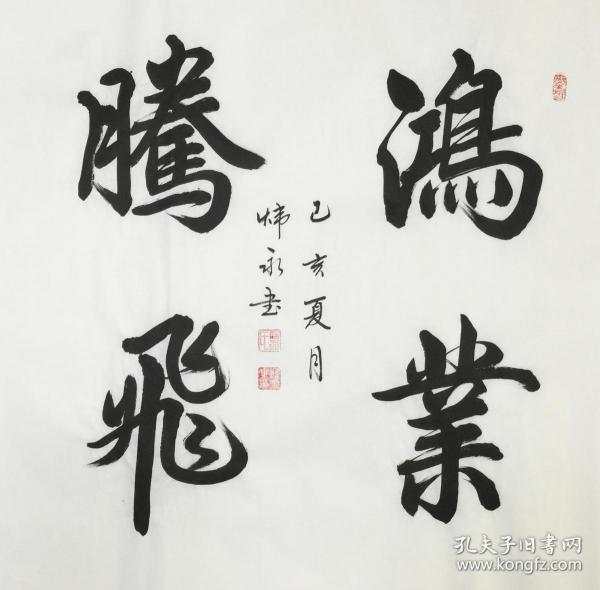 鴻業
騰飛
己亥夏月
炜永书
孔夫子旧书网
www.kongfz.com